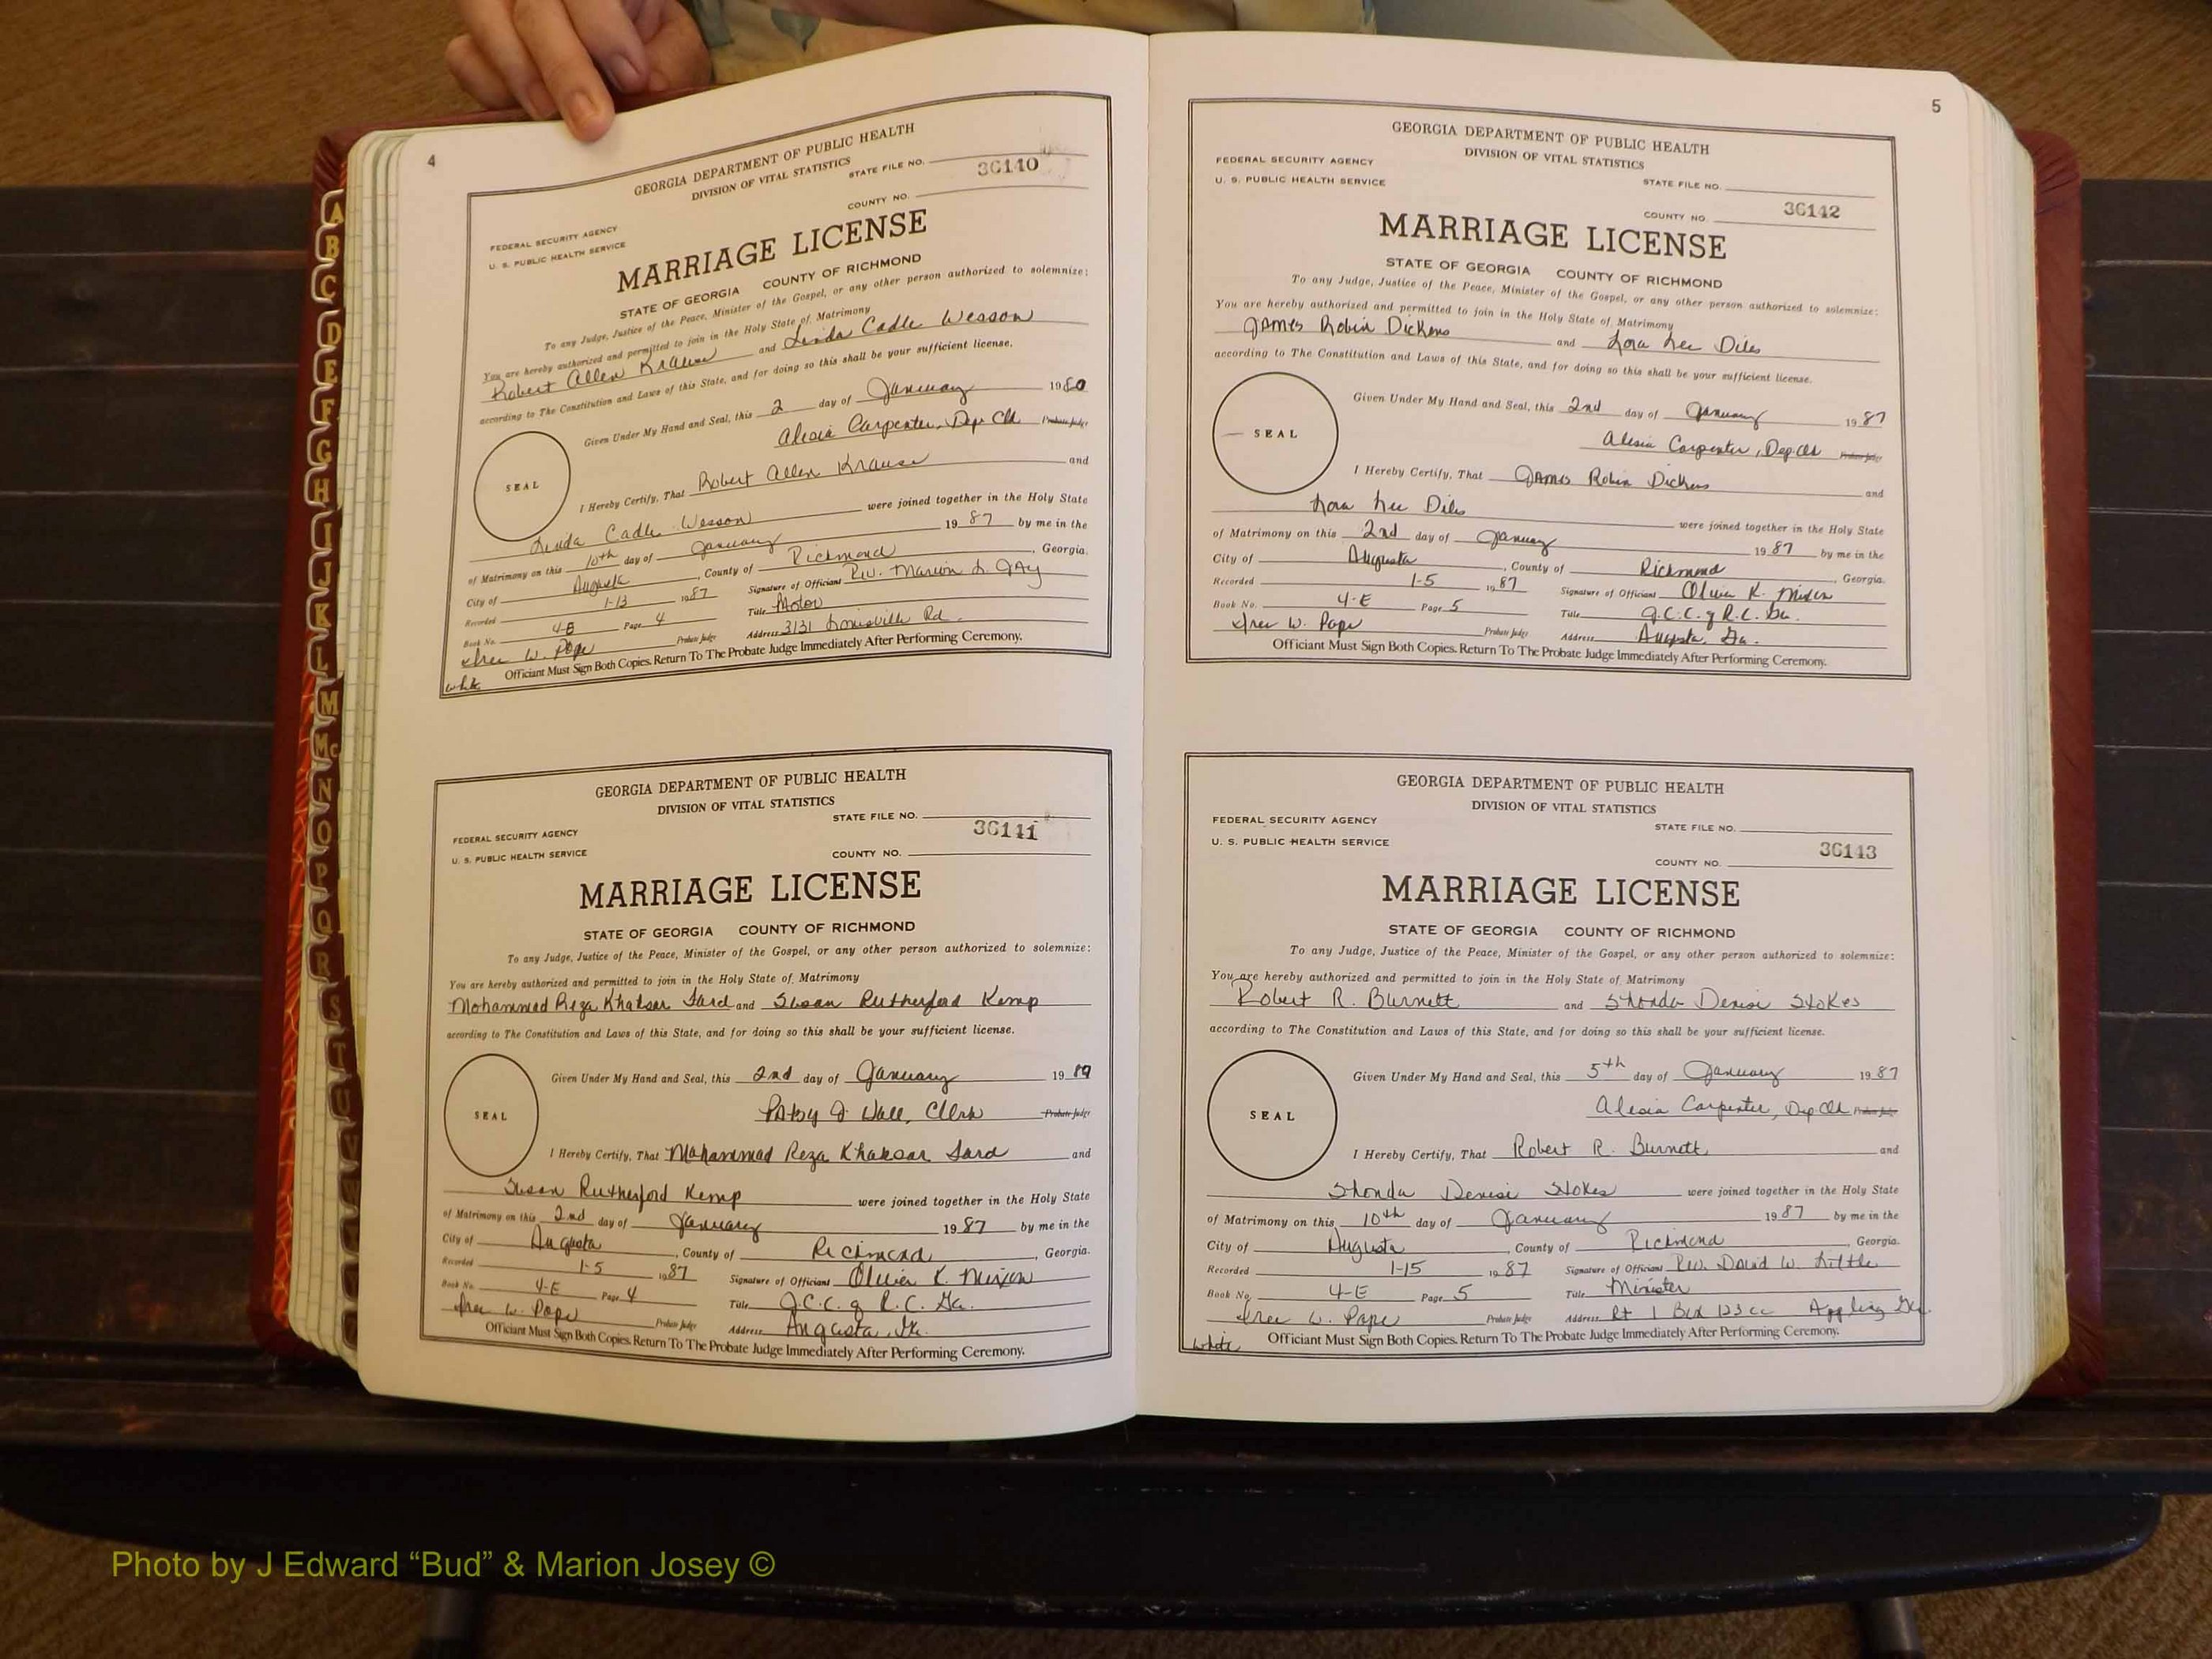 4
GEORGIA DEPARTMENT OF PUBLIC HEALTH
DIVISION OF VITAL STATISTICS
STATE FILE NO.
36140
FEDERAL SECURITY AGENCY
U. S. PUBLIC HEALTH SERVICE
COUNTY NO.
MARRIAGE LICENSE
STATE OF GEORGIA COUNTY OF RICHMOND
To any Judge, Justice of the Peace, Minister of the Gospel, or any other person authorized to solemnize:
You are hereby authorized and permitted to join in the Holy State of Matrimony
Robert Allen Krause and Linda Cadle Wesson
according to The Constitution and Laws of this State, and for doing so this shall be your sufficient license.
Given Under My Hand and Seal, this 2 day of January 19
Alesia Carpenter, Dep Clk Probate Judge
SEAL
I Hereby Certify, That Robert Allen Krause and
Linda Cadle Wesson were joined together in the Holy State
of Matrimony on this 10th day of January 19 87 by me in the
City of Augusta, County of Richmond, Georgia.
Recorded 1-13 1987 Signature of Officiant Rev. Marion L. Gay
Book No. 4-E Page 4 Title
W. Pope Probate Judge Address 3131 Louisville Rd.
Officiant Must Sign Both Copies. Return To The Probate Judge Immediately After Performing Ceremony.
white
GEORGIA DEPARTMENT OF PUBLIC HEALTH
DIVISION OF VITAL STATISTICS
STATE FILE NO.
36141
FEDERAL SECURITY AGENCY
U. S. PUBLIC HEALTH SERVICE
COUNTY NO.
MARRIAGE LICENSE
STATE OF GEORGIA COUNTY OF RICHMOND
To any Judge, Justice of the Peace, Minister of the Gospel, or any other person authorized to solemnize:
You are hereby authorized and permitted to join in the Holy State of Matrimony
Mohammad Reza Khaksar Sard and Susan Rutherford Kemp
according to The Constitution and Laws of this State, and for doing so this shall be your sufficient license.
Given Under My Hand and Seal, this 2nd day of January 19
Patsy J. Wall, Clerk Probate Judge
SEAL
I Hereby Certify, That Mohammad Reza Khaksar Sard and
Susan Rutherford Kemp were joined together in the Holy State
of Matrimony on this 2nd day of January 19 87 by me in the
City of Augusta, County of Richmond, Georgia.
Recorded 1-5 1987 Signature of Officiant Olivier K. Mixon
Book No. 4-E Page 4 Title J.C.C. of R.C. Ga.
W. Pope Probate Judge Address Augusta, Ga.
Officiant Must Sign Both Copies. Return To The Probate Judge Immediately After Performing Ceremony.
5
GEORGIA DEPARTMENT OF PUBLIC HEALTH
DIVISION OF VITAL STATISTICS
FEDERAL SECURITY AGENCY
U. S. PUBLIC HEALTH SERVICE
STATE FILE NO.
36142
COUNTY NO.
MARRIAGE LICENSE
STATE OF GEORGIA COUNTY OF RICHMOND
To any Judge, Justice of the Peace, Minister of the Gospel, or any other person authorized to solemnize:
You are hereby authorized and permitted to join in the Holy State of Matrimony
James Robin Dickens and Lora Lee Diles
according to The Constitution and Laws of this State, and for doing so this shall be your sufficient license.
Given Under My Hand and Seal, this 2nd day of January 19 87
Alesia Carpenter, Dep. Clk Probate Judge
SEAL
I Hereby Certify, That James Robin Dickens and
Lora Lee Diles were joined together in the Holy State
of Matrimony on this 2nd day of January 19 87 by me in the
City of Augusta, County of Richmond, Georgia.
Recorded 1-5 1987 Signature of Officiant Olivier K. Mixon
Book No. 4-E Page 5 Title J.C.C. of R.C. Ga.
W. Pope Probate Judge Address Augusta, Ga.
Officiant Must Sign Both Copies. Return To The Probate Judge Immediately After Performing Ceremony.
GEORGIA DEPARTMENT OF PUBLIC HEALTH
DIVISION OF VITAL STATISTICS
FEDERAL SECURITY AGENCY
U. S. PUBLIC HEALTH SERVICE
STATE FILE NO.
36143
COUNTY NO.
MARRIAGE LICENSE
STATE OF GEORGIA COUNTY OF RICHMOND
To any Judge, Justice of the Peace, Minister of the Gospel, or any other person authorized to solemnize:
You are hereby authorized and permitted to join in the Holy State of Matrimony
Robert R. Burnett and Shonda Denise Stokes
according to The Constitution and Laws of this State, and for doing so this shall be your sufficient license.
Given Under My Hand and Seal, this 5th day of January 19 87
Alesia Carpenter, Dep Clk Probate Judge
SEAL
I Hereby Certify, That Robert R. Burnett and
Shonda Denise Stokes were joined together in the Holy State
of Matrimony on this 10th day of January 19 87 by me in the
City of Augusta, County of Richmond, Georgia.
Recorded 1-15 19 87 Signature of Officiant Rev. David W. Little
Book No. 4-E Page 5 Title Minister
W. Pope Probate Judge Address Rt 1 Box 123 cc Appling Ga.
Officiant Must Sign Both Copies. Return To The Probate Judge Immediately After Performing Ceremony.
white
A
B
C
D
E
F
G
H
I
J
K
L
M
Mc
N
O
P
Q
R
S
T
U
Photo by J Edward “Bud” & Marion Josey ©